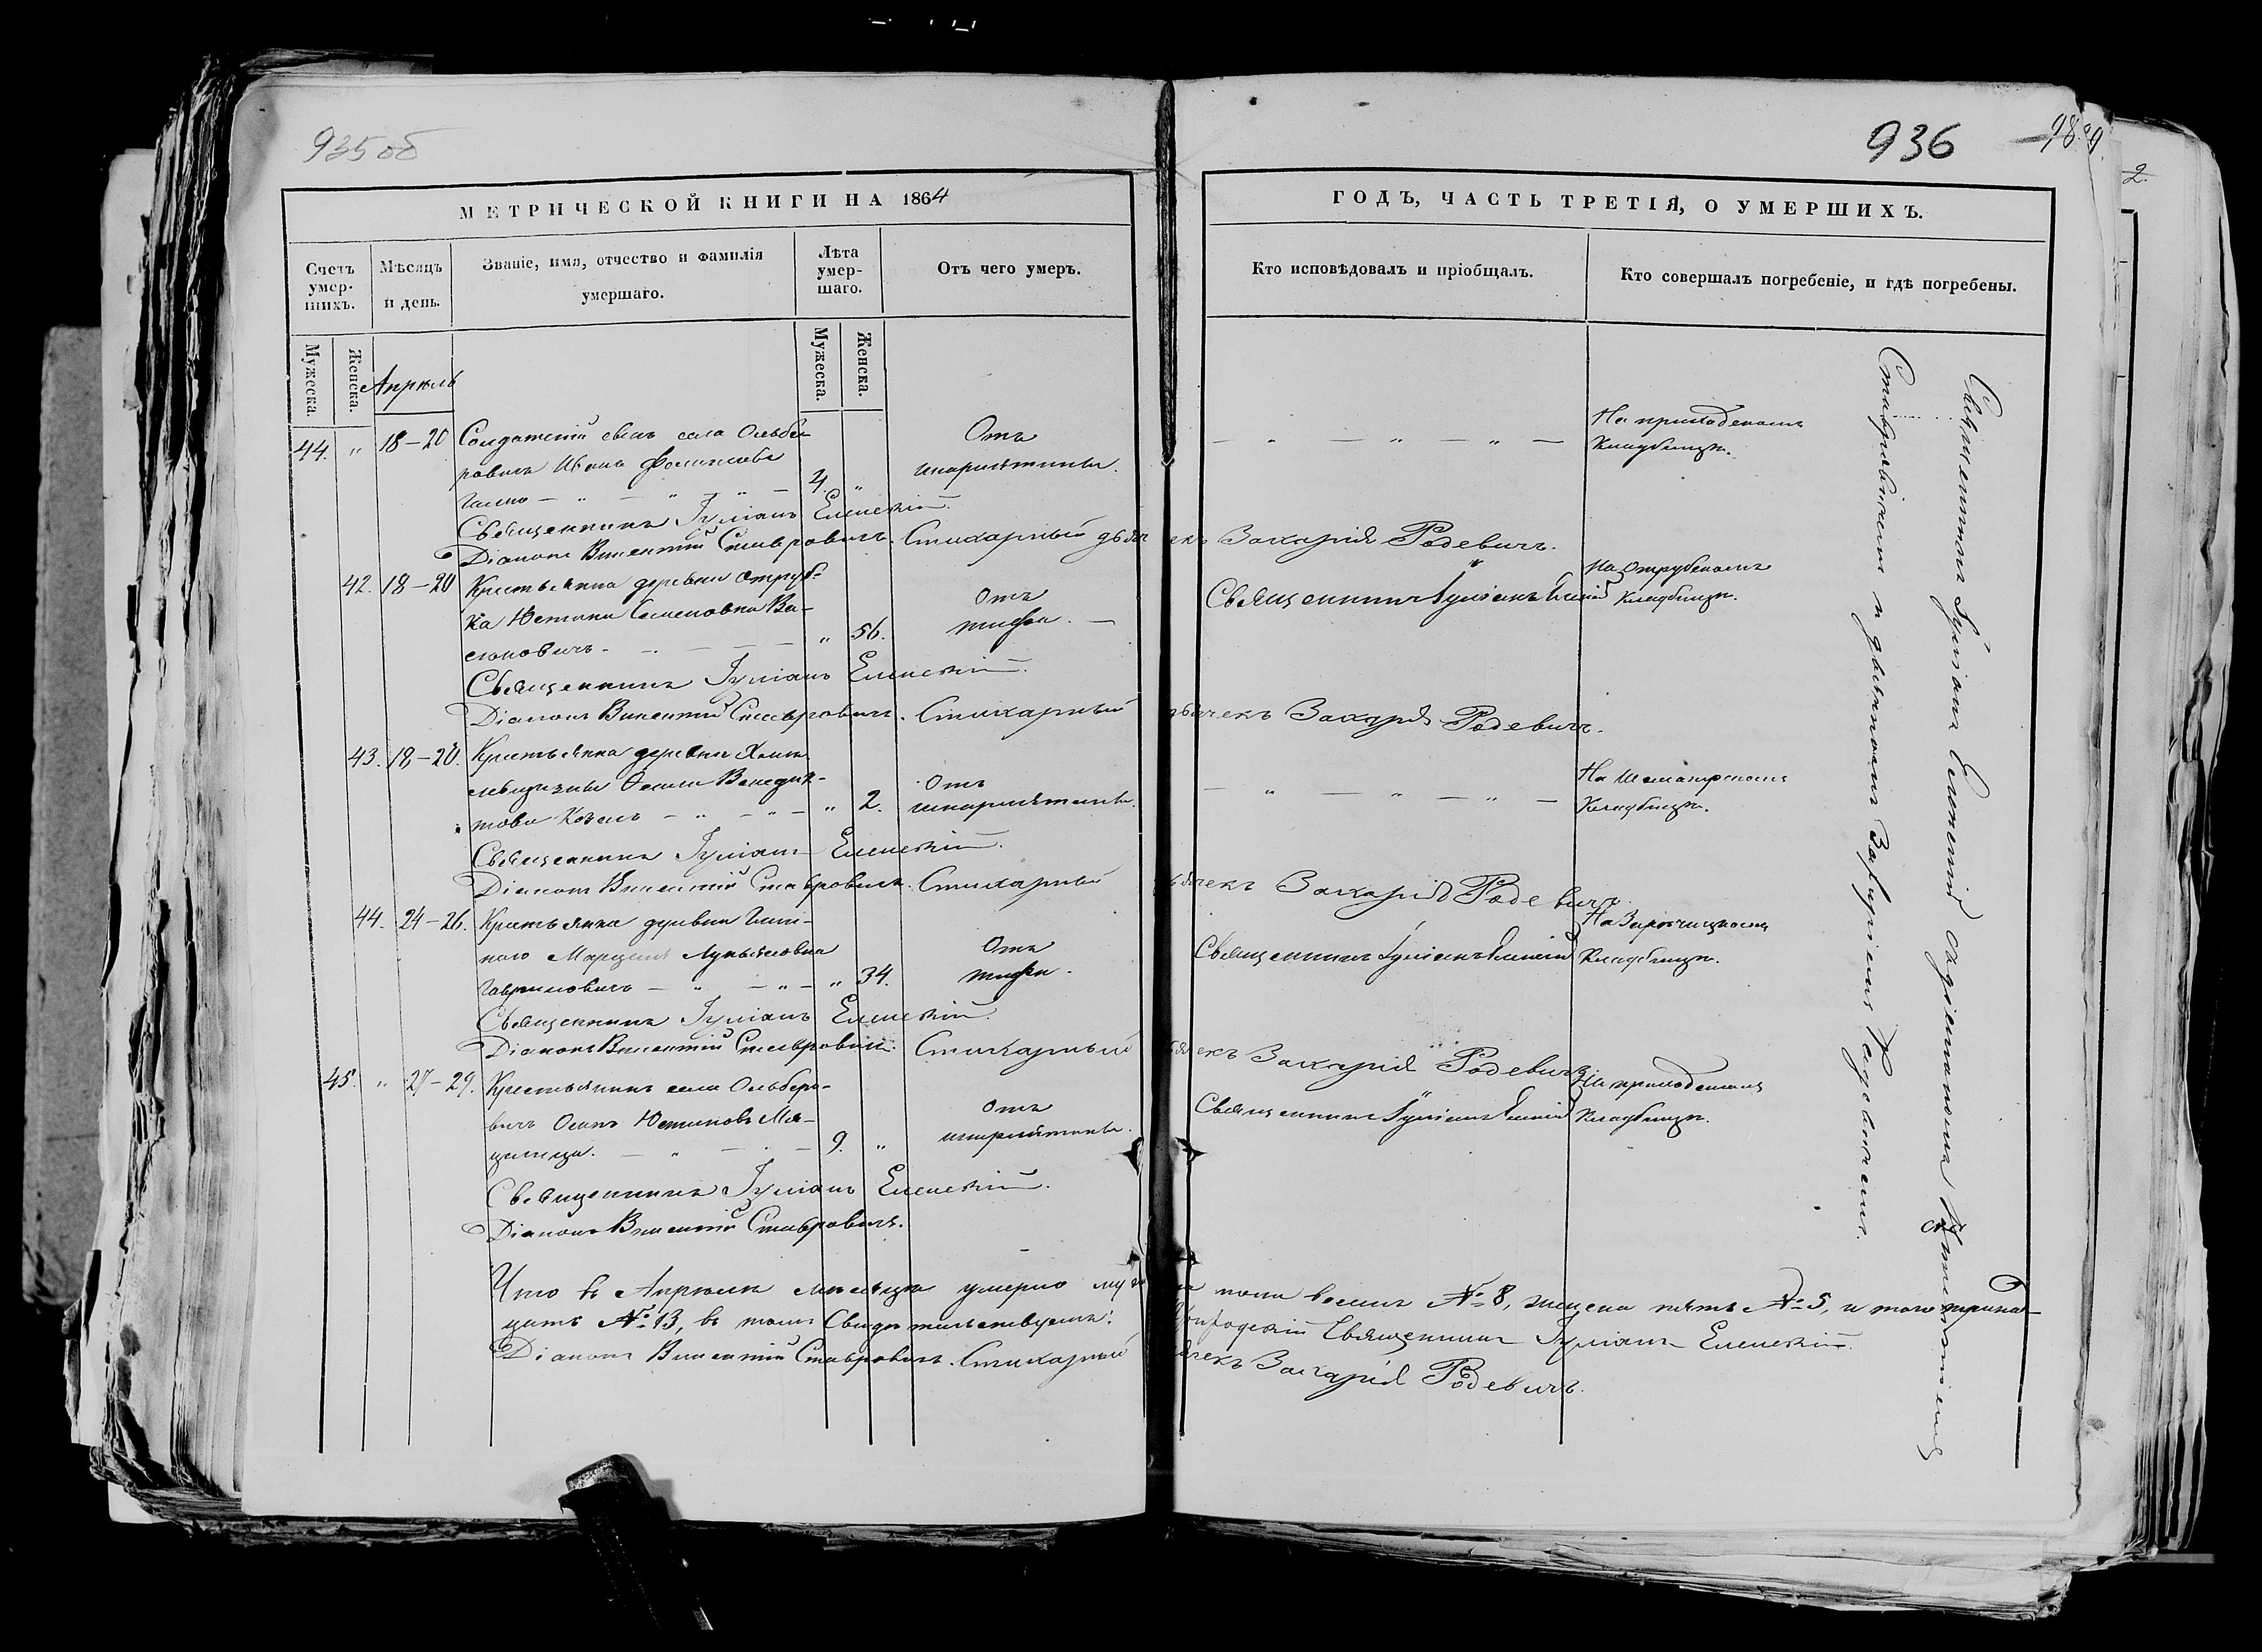 935 об
936
98.
2.
МЕТРИЧЕСКОЙ КНИГИ НА 1864
ГОДЪ, ЧАСТЬ ТРЕТІЯ, О УМЕРШИХЪ.
Счетъ умер-шихъ.
Мѣсяцъ и день.
Званіе, имя, отчество и фамилія умершаго.
Лѣта умер-шаго.
Отъ чего умеръ.
Кто исповѣдовалъ и пріобщалъ.
Кто совершалъ погребеніе, и гдѣ погребены.
Мужеска.
Женска.
Апрѣль
Мужеска.
Женска.
44. " 18–20 Солдатскій сынъ села Ольбе-
ровичъ Иванъ
4. "
Отъ
шкарлятины.
На приходскомъ
кладбищѣ.
Священникъ Іуліанъ Еленскій.
Діаконъ Викентій Ставровичъ. Стихарный дьячекъ Захарія Родевичъ.
42. 18–20 Крестьянка деревни Отруб-
ка Юстина Семеновна Ва-
сюковичъ.
" 56.
Отъ
тифа.
Священникъ Іуліанъ Еленскій
На Отрубскомъ
кладбищѣ.
Священникъ Іуліанъ Еленскій.
Діаконъ Викентій Ставровичъ. Стихарный дьячекъ Захарія Родевичъ.
43. 18–20. Крестьянка деревни
Венедик-
това Козелъ
" 2.
Отъ
шкарлятины.
На
кладбищѣ.
Священникъ Іуліанъ Еленскій.
Діаконъ Викентій Ставровичъ. Стихарный дьячекъ Захарія Родевичъ.
44. 24–26. Крестьянка деревни
Лукьяновна
Гавриловичъ
" 34.
Отъ
тифа.
Священникъ Іуліанъ Еленскій
На
кладбищѣ.
Священникъ Іуліанъ Еленскій.
Діаконъ Викентій Ставровичъ. Стихарный дьячекъ Захарія Родевичъ.
45. " 27–29. Крестьянинъ села Ольберо-
вичъ Осипъ Юстиновъ Ма-
9. "
Отъ
шкарлятины.
Священникъ Іуліанъ Еленскій
На приходскомъ
кладбищѣ.
Священникъ Іуліанъ Еленскій.
Діаконъ Викентій Ставровичъ.
Что въ Апрѣлѣ мѣсяцѣ умерло мужеска пола восемь № 8, женска пять № 5, и того трина-
цать № 13, въ томъ свидѣтельствуемъ: Священникъ Іуліанъ Еленскій.
Діаконъ Викентій Ставровичъ. Стихарный дьячекъ Захарія Родевичъ.
Священникъ Іуліанъ Еленскій съ діакономъ Викентіемъ
Ставровичемъ и дьячкомъ Захаріемъ Радевичемъ.